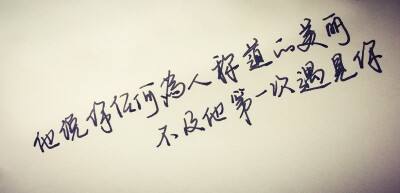 他说你任何为人称道的美丽
不及他第一次遇見你